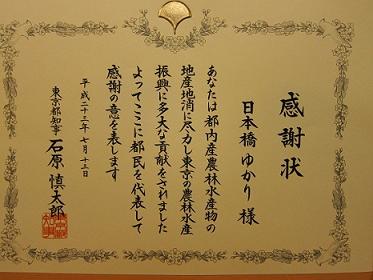 感謝状
日本橋ゆかり様
あなたは都内産農林水産物の
地産地消に尽力し東京の農林水産
振興に多大な貢献をされました
よってここに都民を代表して
感謝の意を表します
平成二十三年七月十三日
東京都知事 石原慎太郎